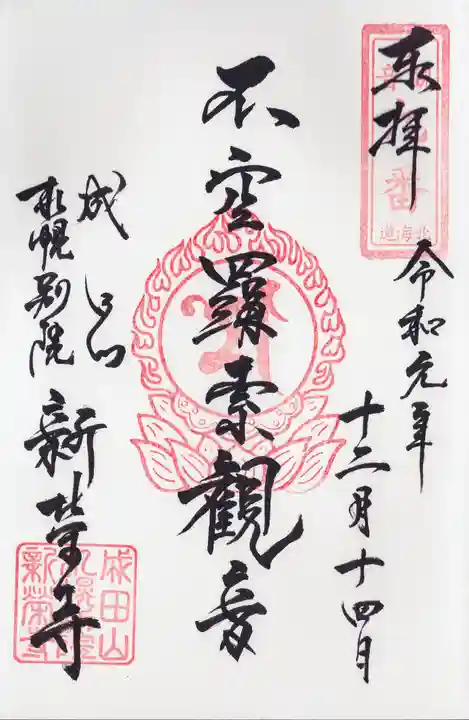 奉拝
令和元年
十二月十四日
不空羂索観音
成田山
札幌別院
新栄寺
番
北海道
成田山
札幌別院
新栄寺